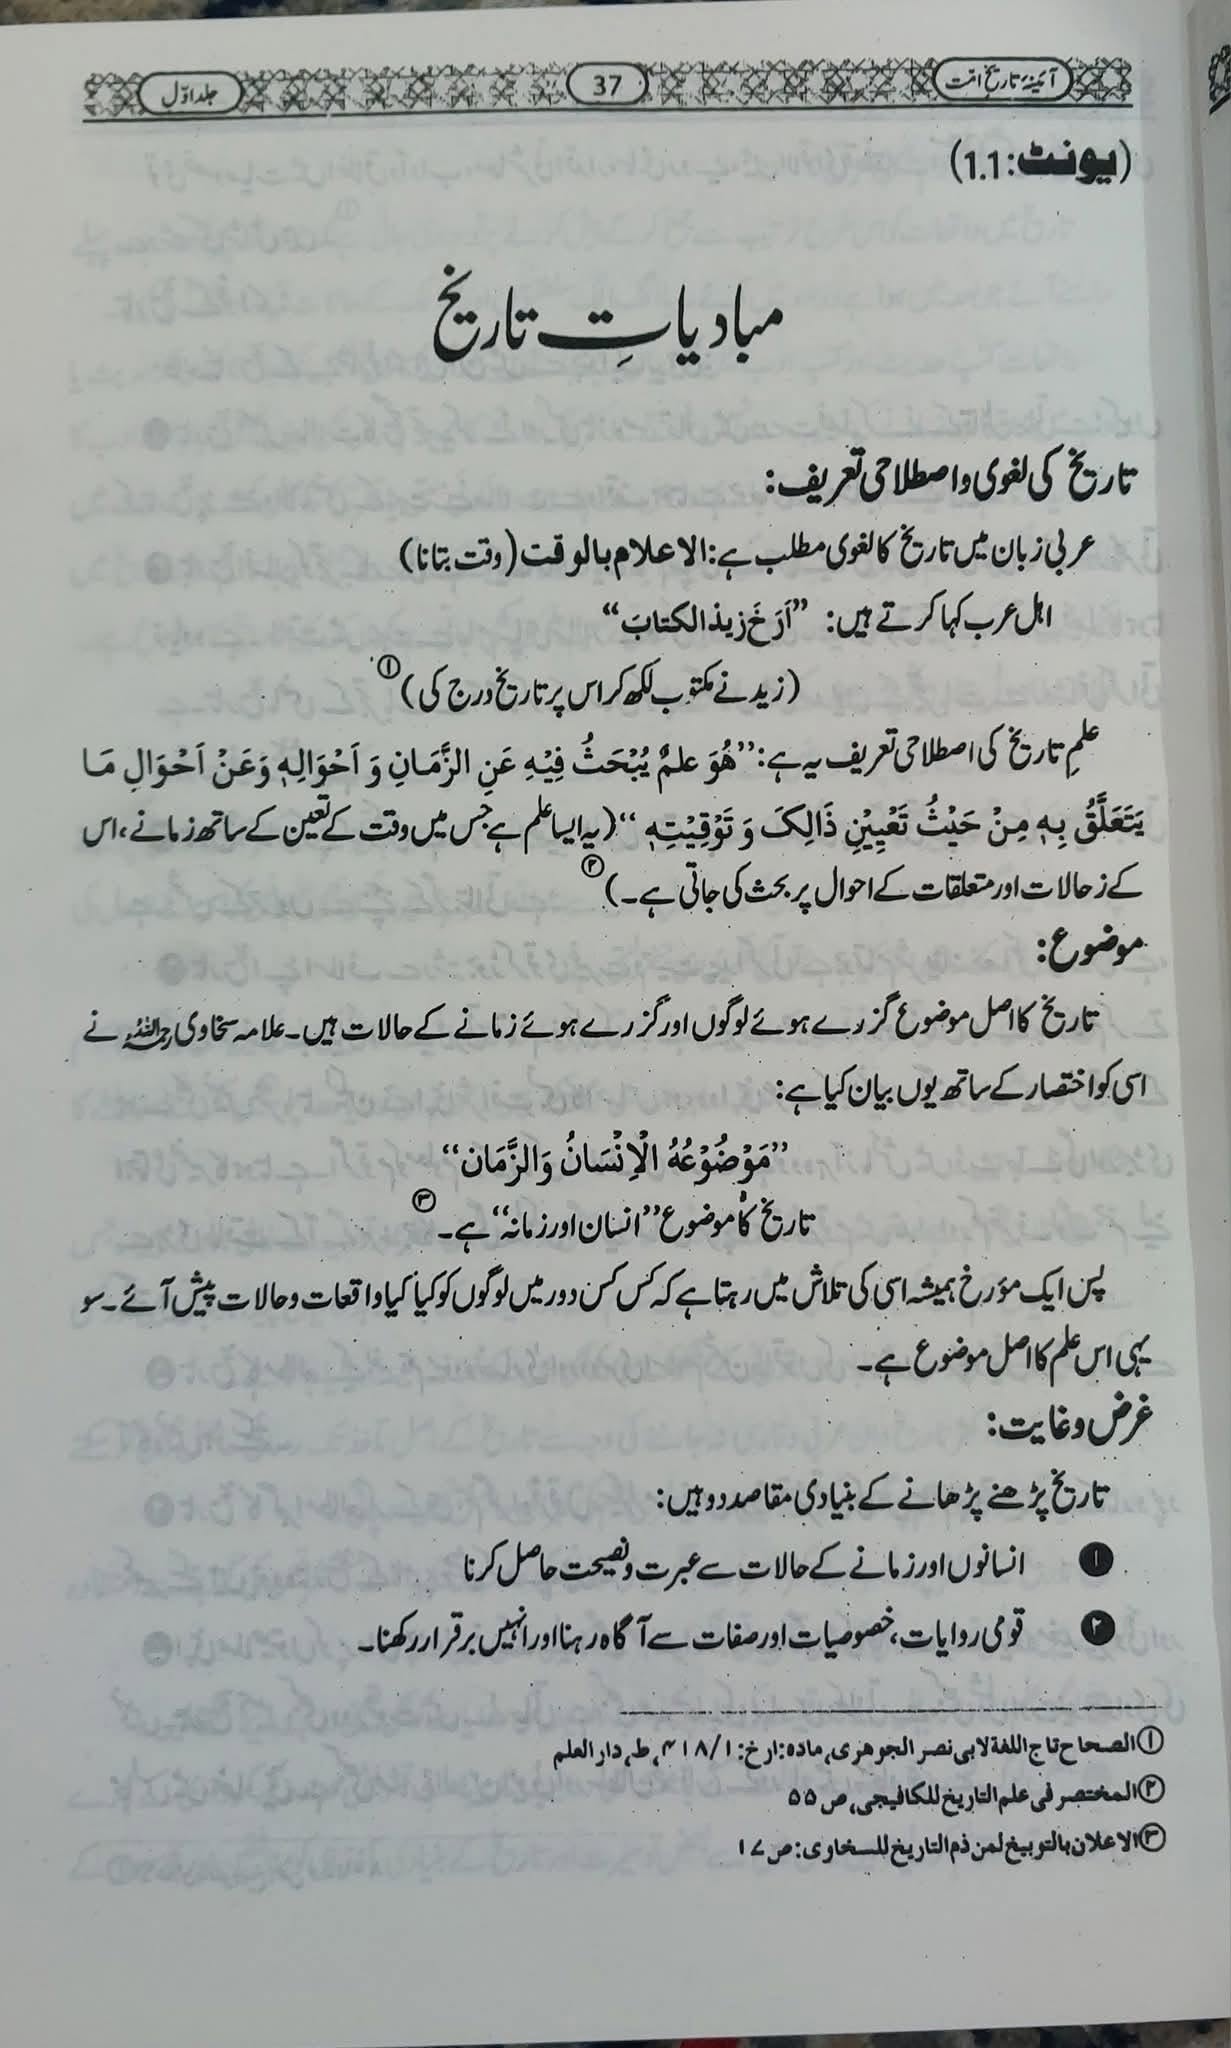 آئینۂ تاریخ امت
37
جلد اوّل
(یونٹ: 1.1)
مبادیاتِ تاریخ
تاریخ کی لغوی و اصطلاحی تعریف:
عربی زبان میں تاریخ کا لغوی مطلب ہے: الاعلام بالوقت (وقت بتانا)
اہل عرب کہا کرتے ہیں: ”اَرَّخَ زیدُ الکتابَ“
(زید نے مکتوب لکھ کر اس پر تاریخ درج کی)①
علمِ تاریخ کی اصطلاحی تعریف یہ ہے: ”هُوَ عِلمٌ يُبْحَثُ فِيْهِ عَنِ الزَّمَانِ وَ اَحْوَالِهٖ وَعَنْ اَحْوَالِ مَا
يَتَعَلَّقُ بِهٖ مِنْ حَيْثُ تَعْيِيْنِ ذَالِكَ وَ تَوْقِيْتِهٖ“ (یہ ایسا علم ہے جس میں وقت کے تعین کے ساتھ زمانے، اس
کے حالات اور متعلقات کے احوال پر بحث کی جاتی ہے۔)②
موضوع:
تاریخ کا اصل موضوع گزرے ہوئے لوگوں اور گزرے ہوئے زمانے کے حالات ہیں۔ علامہ سخاوی رحمہ اللہ نے
اسی کو اختصار کے ساتھ یوں بیان کیا ہے:
”مَوْضُوْعُهُ الْاِنْسَانُ وَالزَّمَان“
تاریخ کا موضوع ”انسان اور زمانہ“ ہے۔③
پس ایک مؤرخ ہمیشہ اسی کی تلاش میں رہتا ہے کہ کس کس دور میں لوگوں کو کیا کیا واقعات و حالات پیش آئے۔ سو
یہی اس علم کا اصل موضوع ہے۔
غرض و غایت:
تاریخ پڑھنے پڑھانے کے بنیادی مقاصد دو ہیں:
❶ انسانوں اور زمانے کے حالات سے عبرت و نصیحت حاصل کرنا
❷ قومی روایات، خصوصیات اور صفات سے آگاہ رہنا اور انہیں برقرار رکھنا۔
① الصحاح تاج اللغة لابی نصر الجوهری، ماده: ارخ: ۱/ ۴۱۸، ط، دار العلم
② المختصر فی علم التاریخ للکافیجی، ص ۵۵
③ الاعلان بالتوبیخ لمن ذم التاریخ للسخاوی: ص ۱۷